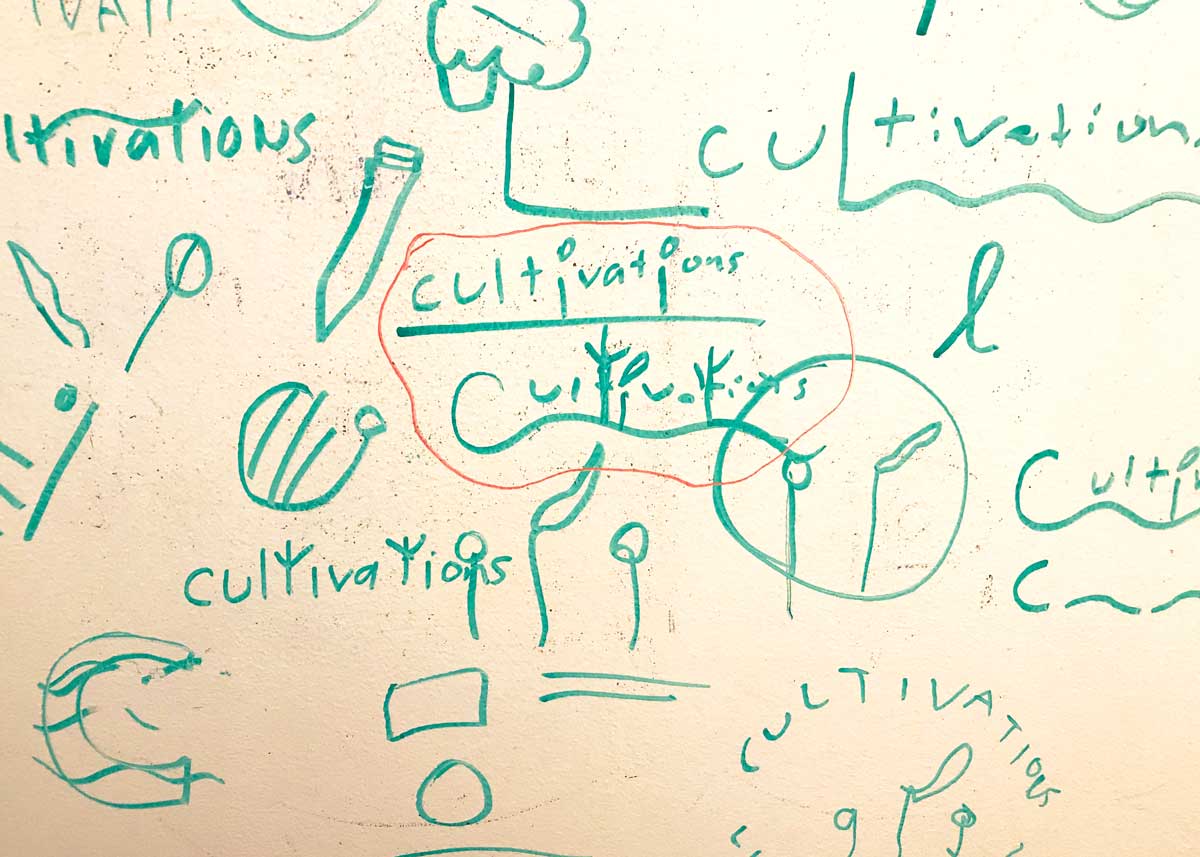 IVATI
ltivations
cultivation
cultivations
l
Cultivations
Culti
cultivations
C
CULTIVATIONS